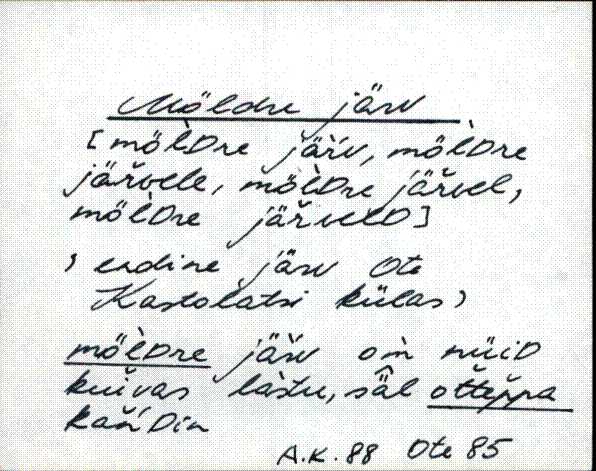 Möldre järv
[möl̀Dre jär̀v, möl̀Dre
järvele, möl̀Dre järvel,
möl̀Dre järvelD]
, endine järv Ote
Kastolatsi külas,
möl̀Dre jär̀v om̀ nüiD
kuivas làstu, sä̂l ot̆t̆ep̆pa
kań̆Din
A.K. 88 Ote 85